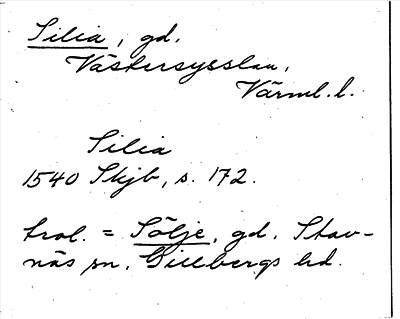 Silia, gd.
Västersysslan,
Värml. l.
Silia
1540 Skjb, s. 172.
trol. = Sölje, gd. Stav-
näs sn. Gillbergs hd.